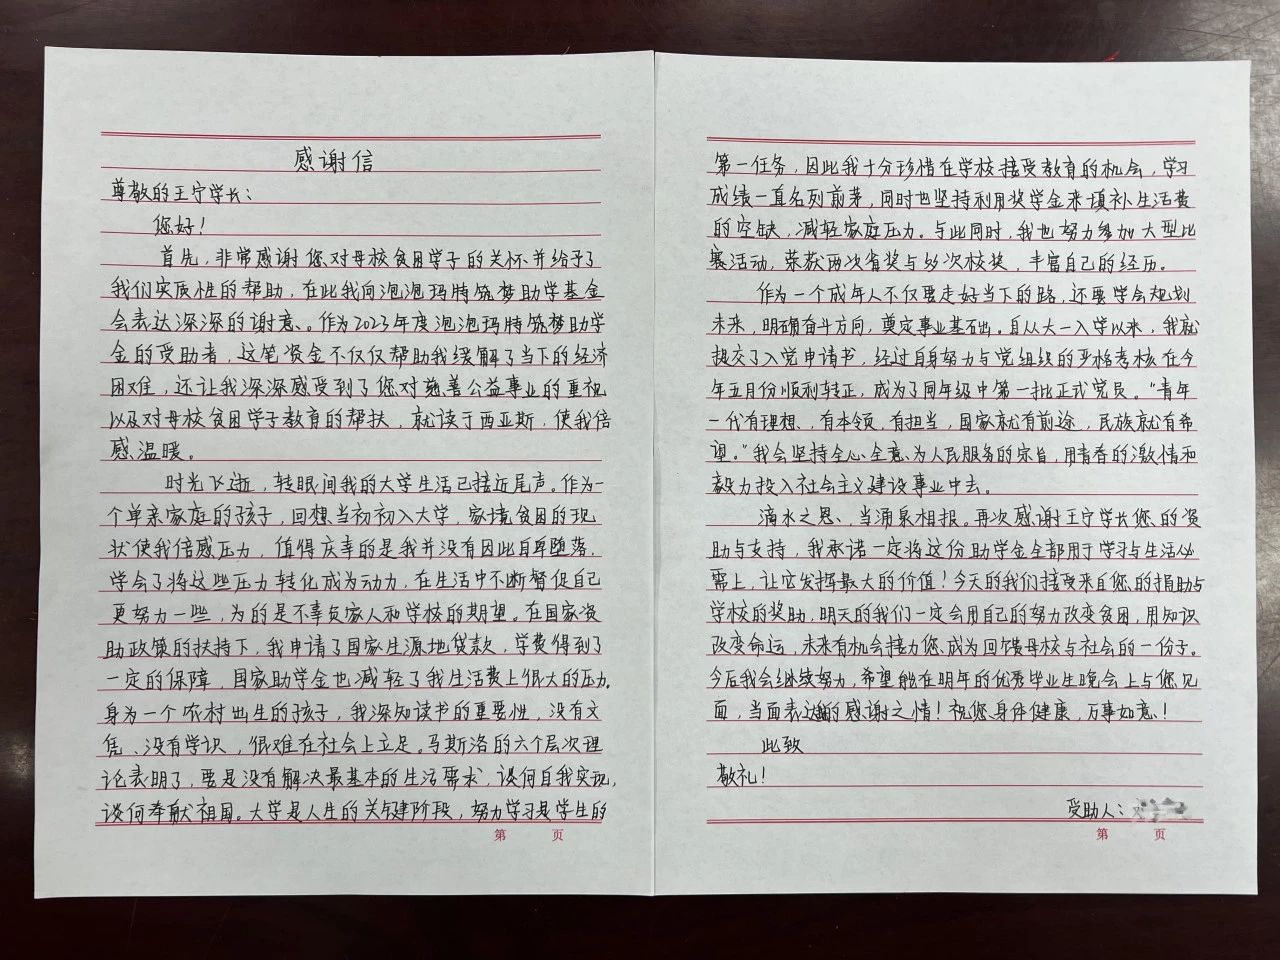 感谢信
尊敬的王宁学长：
您好！
首先，非常感谢您对母校贫困学子的关怀并给予了
我们实质性的帮助，在此我向泡泡玛特筑梦助学基金
会表达深深的谢意。作为2023年度泡泡玛特筑梦助学
金的受助者，这笔资金不仅仅帮助我缓解了当下的经济
困难，还让我深深感受到了您对慈善公益事业的重视
以及对母校贫困学子教育的帮扶，就读于西亚斯，使我倍
感温暖。
时光飞逝，转眼间我的大学生活已接近尾声。作为一
个单亲家庭的孩子，回想当初初入大学，家境贫困的现
状使我倍感压力，值得庆幸的是我并没有因此自卑堕落，
学会了将这些压力转化成为动力，在生活中不断督促自己
更努力一些，为的是不辜负家人和学校的期望。在国家资
助政策的扶持下，我申请了国家生源地贷款，学费得到了
一定的保障，国家助学金也减轻了我生活费上很大的压力。
身为一个农村出生的孩子，我深知读书的重要性，没有文
凭、没有学识，很难在社会上立足。马斯洛的六个层次理
论表明了，要是没有解决最基本的生活需求，谈何自我实现，
谈何奉献祖国。大学是人生的关键阶段，努力学习是学生的
第 页
第一任务，因此我十分珍惜在学校接受教育的机会，学习
成绩一直名列前茅，同时也坚持利用奖学金来填补生活费
的空缺，减轻家庭压力。与此同时，我也努力参加大型比
赛活动，荣获两次省奖与多次校奖，丰富自己的经历。
作为一个成年人不仅要走好当下的路，还要学会规划
未来，明确奋斗方向，奠定事业基础。自从大一入学以来，我就
提交了入党申请书，经过自身努力与党组织的严格考核在今
年五月份顺利转正，成为了同年级中第一批正式党员。“青年
一代有理想、有本领、有担当，国家就有前途，民族就有希
望。”我会坚持全心全意为人民服务的宗旨，用青春的激情和
毅力投入社会主义建设事业中去。
滴水之恩、当涌泉相报。再次感谢王宁学长您的资
助与支持，我承诺一定将这份助学金全部用于学习与生活必
需上，让它发挥最大的价值！今天的我们接受来自您的捐助与
学校的奖助，明天的我们一定会用自己的努力改变贫困，用知识
改变命运，未来有机会接力您、成为回馈母校与社会的一份子。
今后我会继续努力，希望能在明年的优秀毕业生晚会上与您见
面，当面表达的感谢之情！祝您身体健康，万事如意！
此致
敬礼！
受助人：
第 页